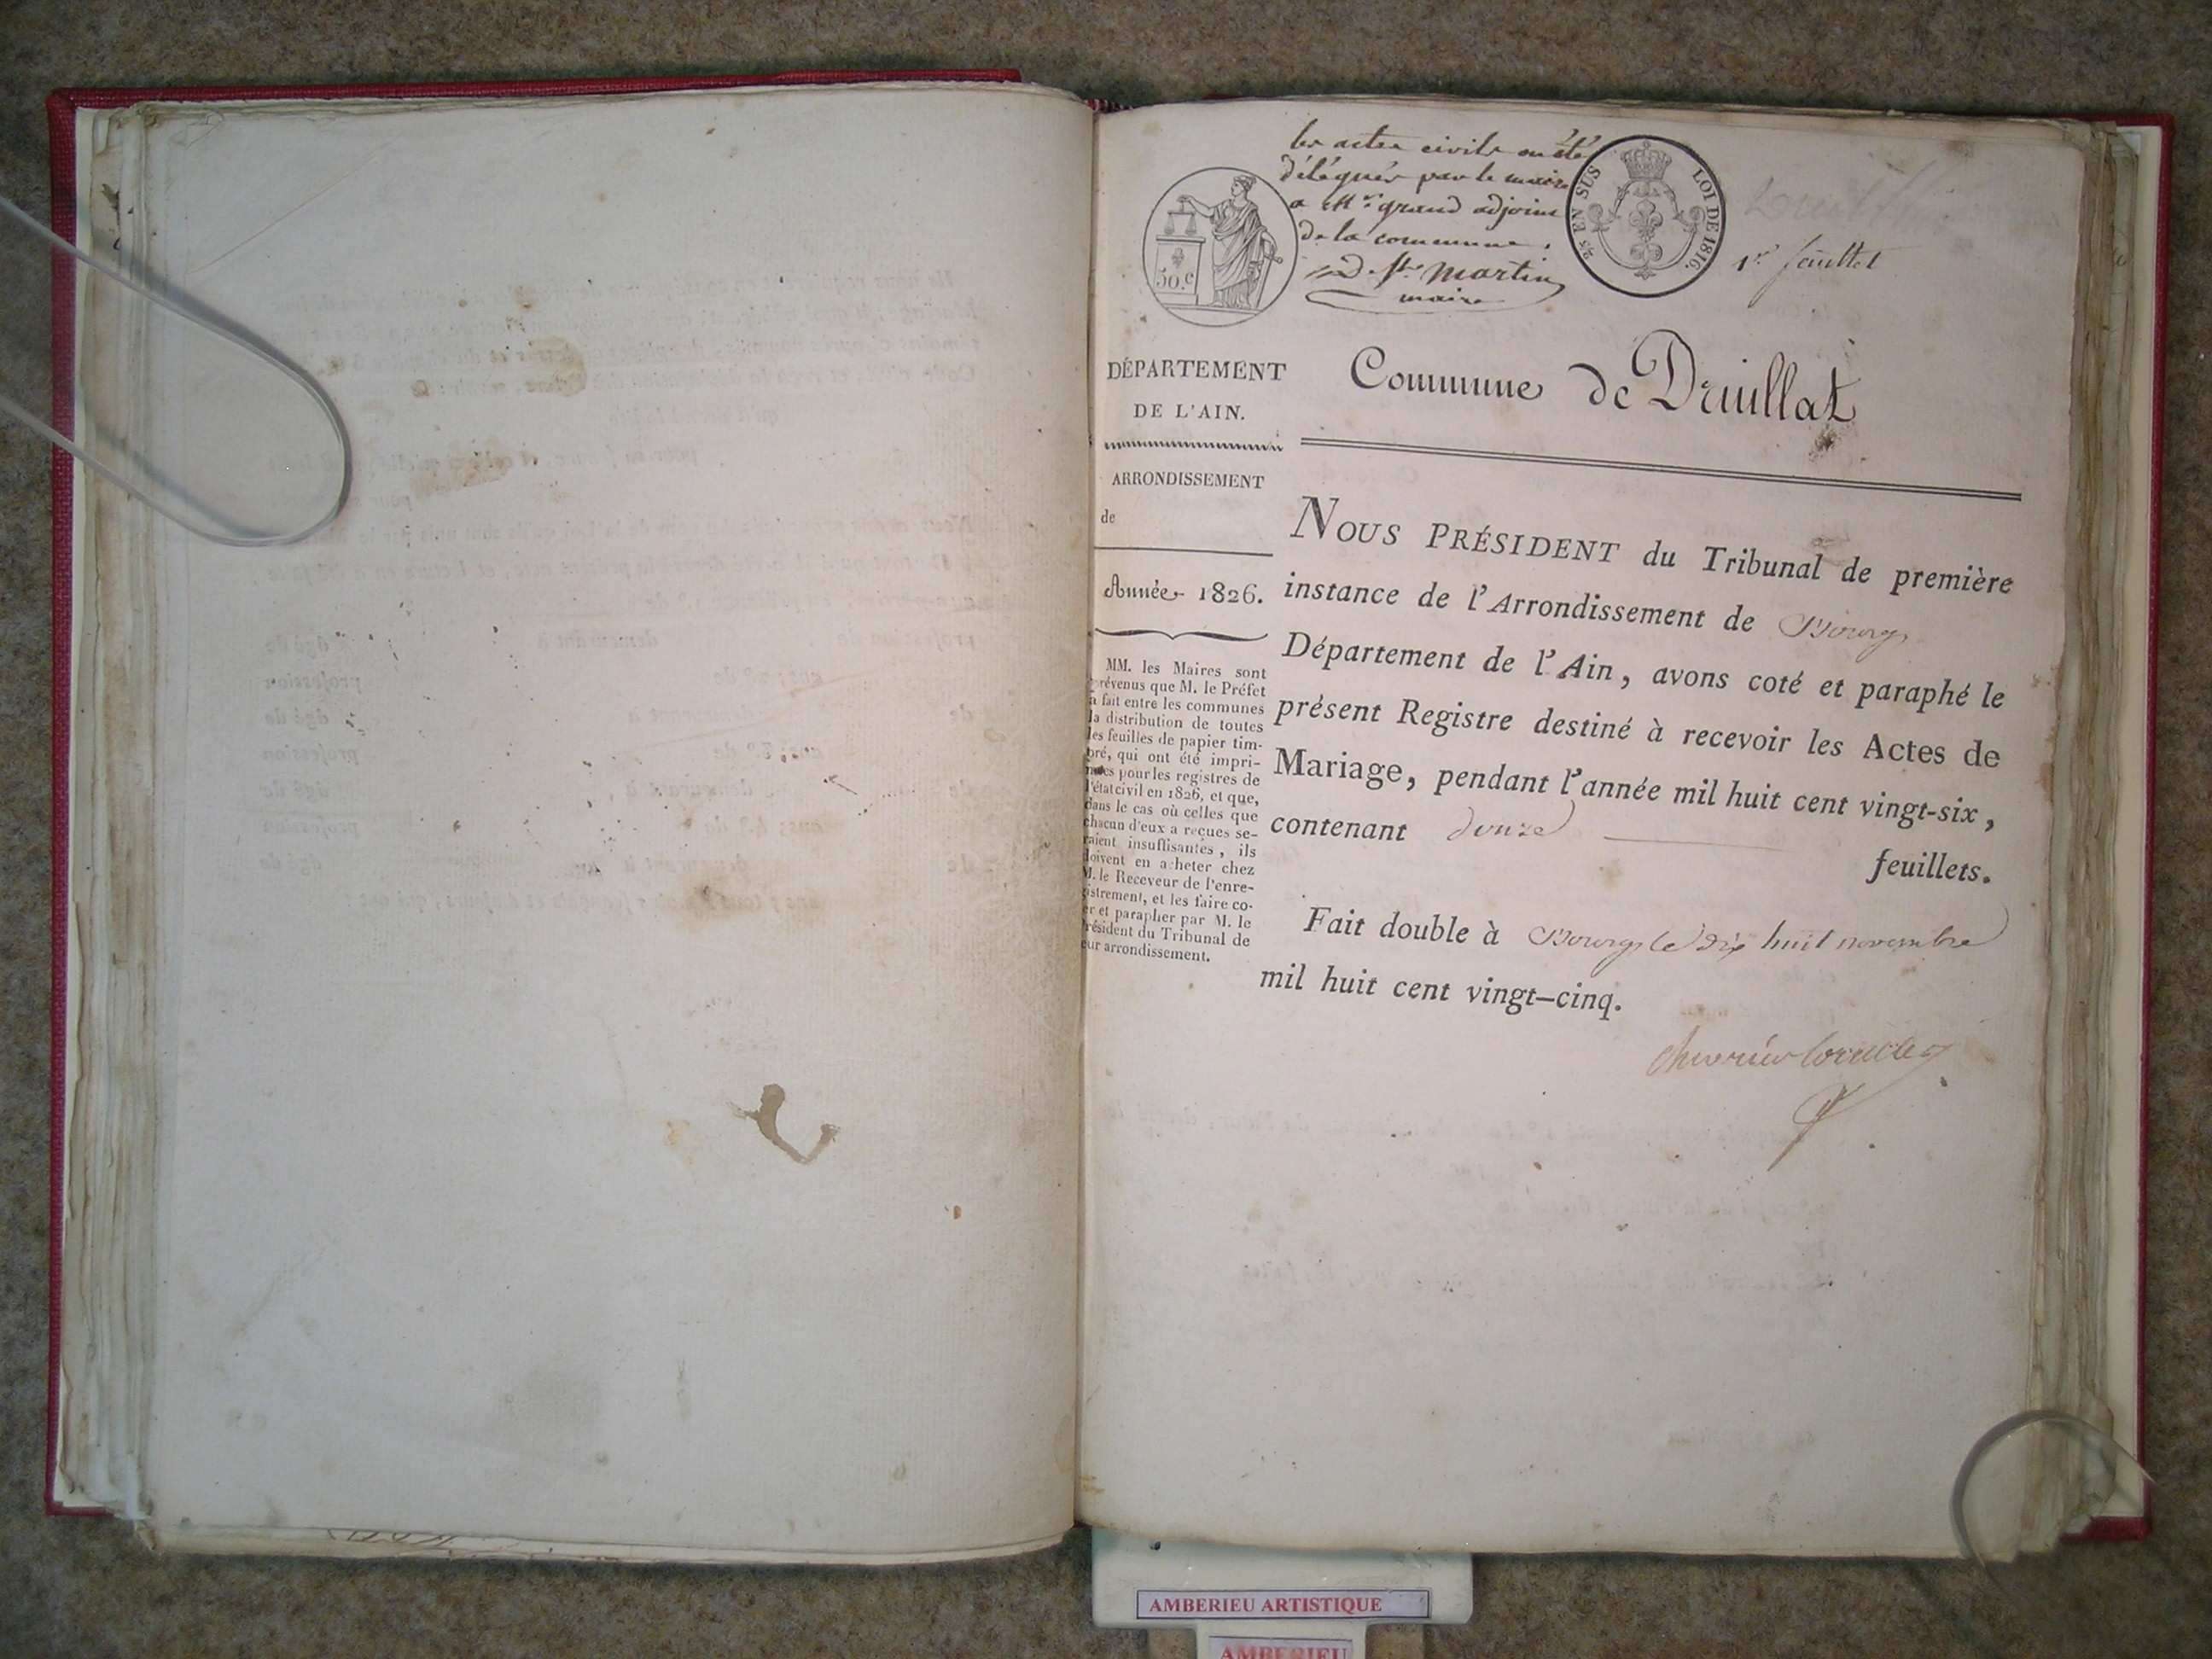 les actes civils on été
délégués par le maire
a Mr. grand adjoint
de la commune.
D. St. Martin
maire
50.C
2/5 EN SUS
LOI DE 1816.
1er feuillet
DÉPARTEMENT
DE L'AIN.
Commune de Druillat
ARRONDISSEMENT
de
Année 1826.
MM. les Maires sont
prévenus que M. le Préfet
a fait entre les communes
la distribution de toutes
les feuilles de papier tim-
bré, qui ont été impri-
mées pour les registres de
l'état civil en 1826, et que,
dans le cas où celles que
chacun d'eux a reçues se-
raient insuffisantes, ils
doivent en acheter chez
M. le Receveur de l'enre-
gistrement, et les faire co-
ter et parapher par M. le
Président du Tribunal de
leur arrondissement.
NOUS PRÉSIDENT du Tribunal de première
instance de l'Arrondissement de Bourg
Département de l'Ain, avons coté et paraphé le
présent Registre destiné à recevoir les Actes de
Mariage, pendant l'année mil huit cent vingt-six,
contenant douze
feuillets.
Fait double à Bourg le dix huit novembre
mil huit cent vingt-cinq.
AMBERIEU ARTISTIQUE
AMBERIEU